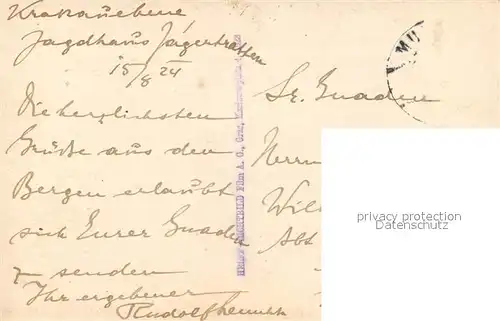 Krakauebene
Jagdhaus Jägertratten
15/8 24
Die herzlichsten
Grüße aus den
Bergen erlaubt
sich Eurer Gnaden
z senden
Ihr ergebener
Rudolf
Film A. G., Graz,
MU
Sr. Gnaden
Herrn
Abt
privacy protection
Datenschutz